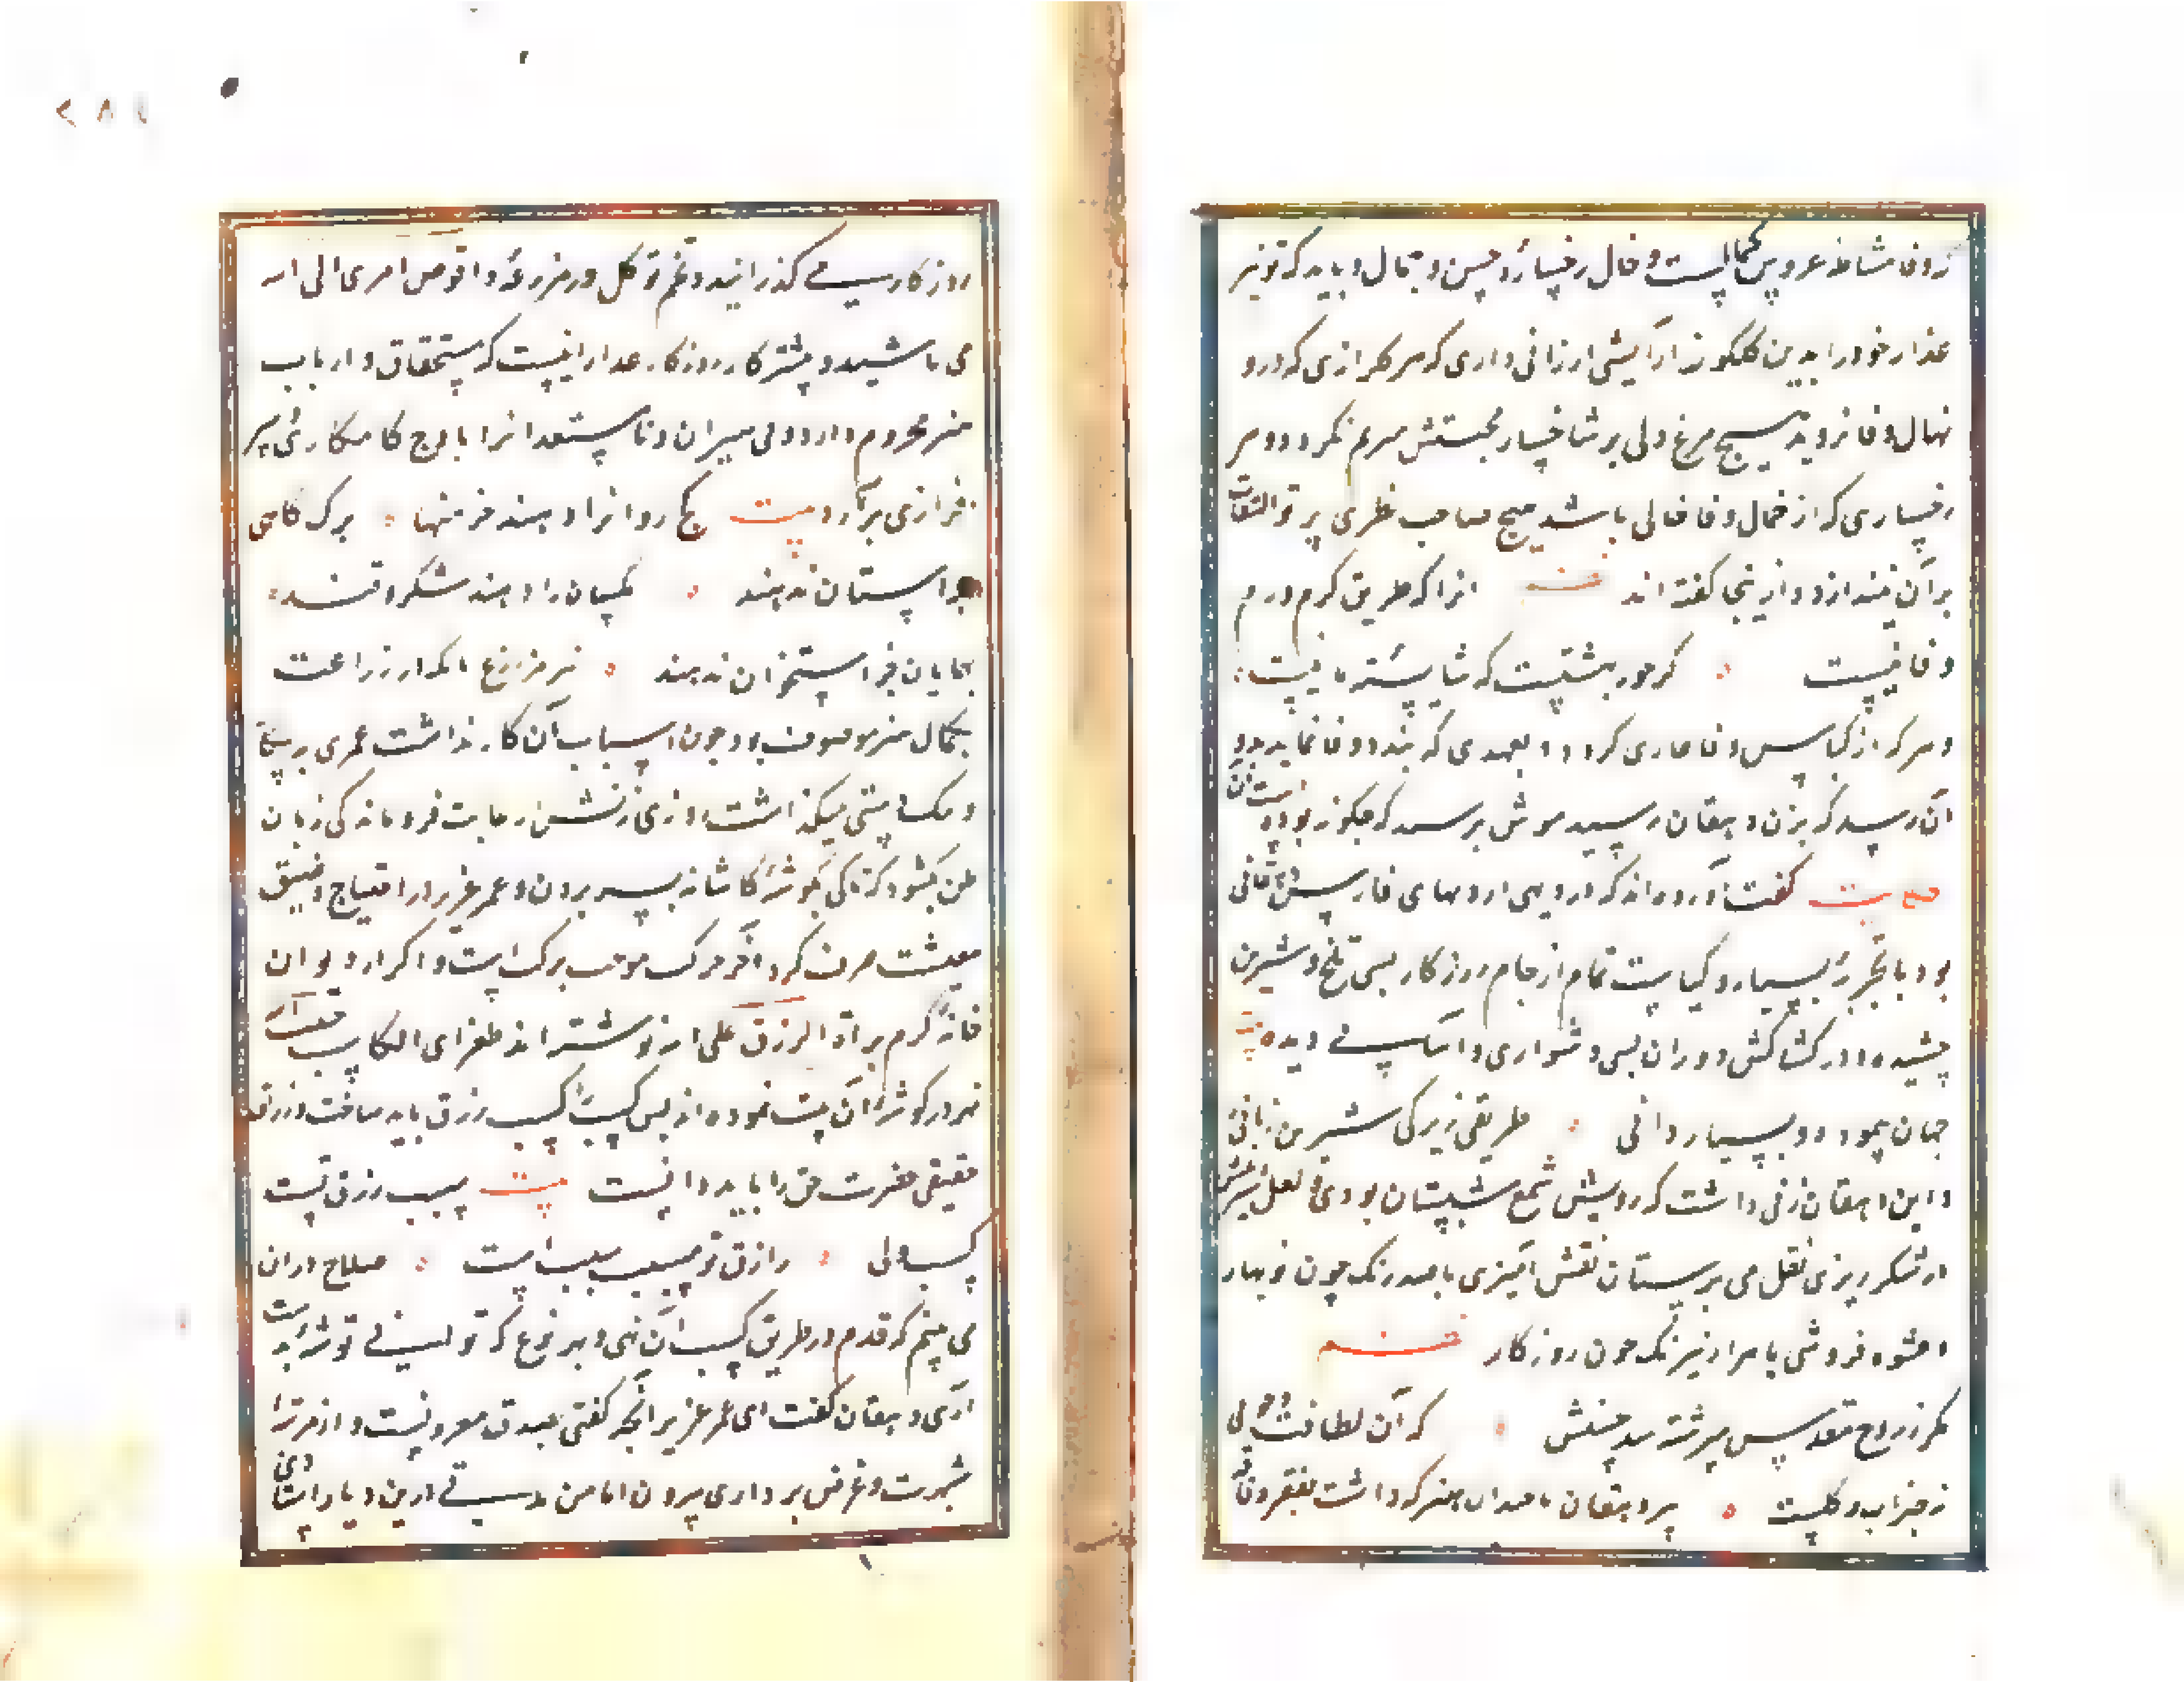 که وفا مشاطه عروس کمالست و خال رخساره حسن و جمال و باید که تو نیز
عذار خود را بدین گلگونه آرایشی ارزانی داری که هر گلزاری که درو
نهال وفا نروید هیچ مرغ دلی بر شاخسار محبتش مترنم نگردد و هر
رخساری که از خال وفا خالی باشد هیچ صاحب نظری پرتو التفات
بر آن نیندازد و ازینجا گفته اند نظم انرا که طریق کرم و رسم
وفا نیست گر حور بهشتیست که شایسته ما نیست
و هر که از لباس وفا عاری گردد و بعهدی که بندد وفا ننماید بدو
آن رسد که بزن دهقان رسید موش پرسید که چگونه بوده است آن
حکایت گفت آورده اند که در دهی از دههای فارس دهقانی
بود با تجربه بسیار و کیاست تمام از جام روزگار بسی تلخ و شیرین
چشیده و در کشاکش دوران بسی دشواری و آسانی دیده بیت
جهان پیموده و بسیار دانی ظریفی زیرکی شیرین زبانی
و این دهقان زنی داشت که رویش شمع شبستان بودی و لعل شیرینش
در شکرریزی نقل می پرستان نقش آمیزی با صد رنگ چون نوبهار
و عشوه فروشی با هزار نیرنگ چون روزگار نظم
مگر ز روح مقدس سرشته شد حسنش که آن لطافت و خوبی
نه حد آب و گلست پیر دهقان با چندان هنر که داشت بفقر و فاقه
روزگار می گذرانید و تخم توکل در مزرعه و افوض امری الی الله
می پاشید و بیشتر کار روزگار غدار اینست که مستحقان و ارباب
هنر محروم دارد و بی هنران و نامستعدانرا باوج کامکاری سر
افرازی برآرد بیت کج روانرا دهند خرمنها برک کاهی
براستان ندهند مگسان را دهند شکر و قند
بهمایان جز استخوان ندهند پیر مزارع با آنکه در زراعت
بکمال هنر موصوف بود چون اسباب آن کار نداشت عمری بر بیکاری
و مکنتی میگذاشت روزی زنش از غایت فروماندگی زبان
طعن بگشود که تا کی بگوشه کاشانه بسر بردن و عمر عزیز در احتیاج و ضیق
معیشت صرف کرد آخر حرکت موجب برکت است و اگر از دیوان
خانه کرم برات الرزق علی الله نوشته اند طغرای الکاسب حبیب الله
نیز در گوشه آن ثبت نموده اند پس کسب را سبب رزق باید ساخت و رازق
حقیقی حضرت حق را باید دانست بیت سبب رزق تست
کسب ولی رازق تو مسبب سبب است صلاح در آن
می بینم که قدم در طریق کسب آن نهی و بهر نوع که توانی توشه بدست
آری دهقان گفت ای عمر عزیز آنچه گفتی بصدق مقرونست و از مرتبه
شبهت و غرض برداری بیرون اما من مدتی درین دیار دهقانی